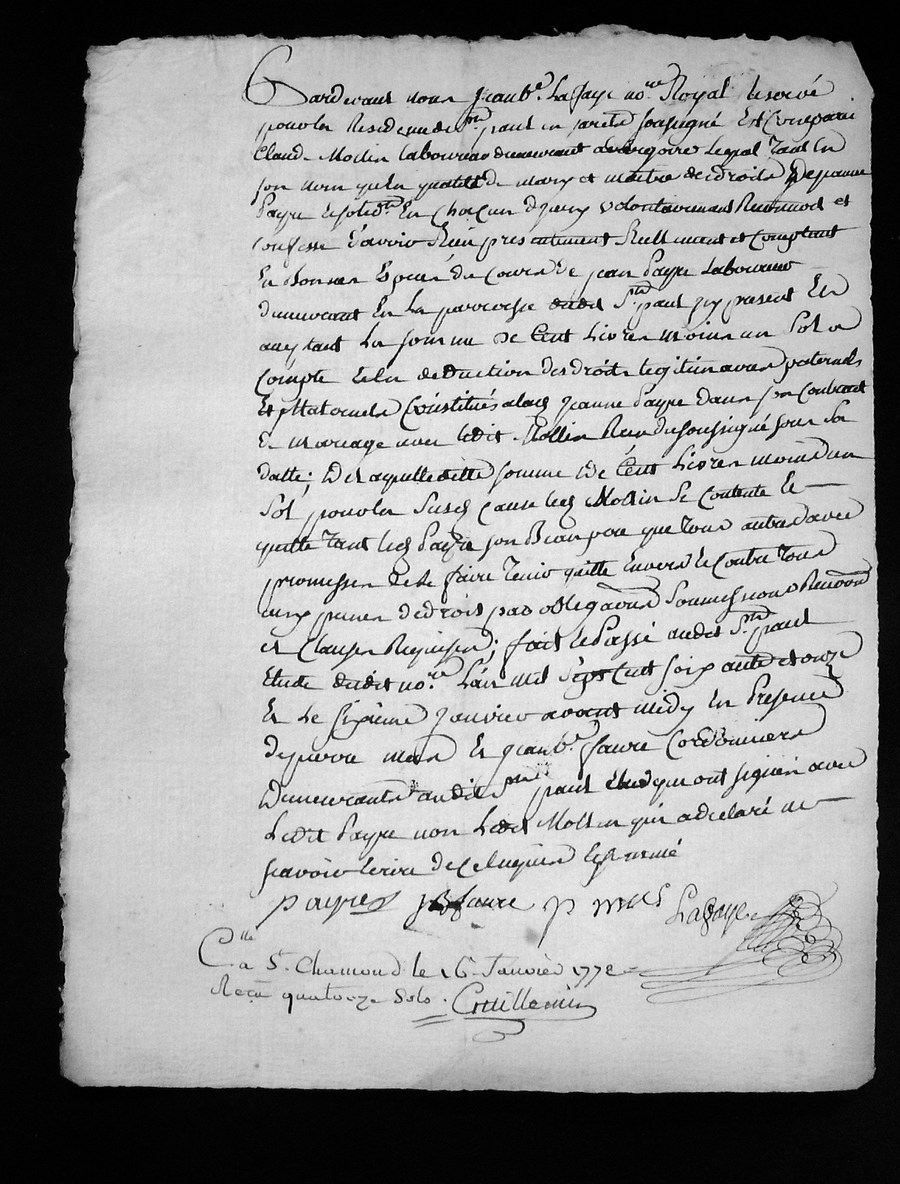 Pardevant nous jean b.te Lafaye no.re Royal Reservé
pour la Residence de S.t paul en jarets soussigné Est Comparu
Claude Mollin laboureur demeurant a legal tant En
son nom qu'En qualité de mary et maitre des droits de jeanne
Payre Et solid.re En Chacun d'jceux volontairement Reconnoit et
confesse d'avoir Reçu presentement Reellement et Comptant
En Bonnes Especes du Cours de jean Payre Laboureur
demeurant En La parroisse dudit S.t paul jcy present Et
acceptant La somme De Cent Livres moins un Sol a
Compte Et En deduction des droits legitimaires paternels
Et Maternels Constitués a lad jeanne Payre dans son Contract
de mariage avec ledit Mollin Reçu du soussigné sous Sa
datte; De laquelle ditte somme de Cent Livres moins un
Sol pour les Susd cause led Mollin Se Contente Et
quitte tant led Payre son Beaupere que tous autres avec
promesses de le faire tenir quitte Envers Et Contre tous
aux peines de droit par obligaons Soumissions Renoons
et Clauses Requises; fait Et Passé audit S.t paul
Etude dudit no.re L'an mil Sept Cent soixante et onze
Et Le Sixieme janvier avant midy En Presence
de pierre mas Et jean b.te faure Cordonniers
Demeurants audit S.t paul qui ont signés avec
Ledit Payre non Ledit Mollin qui a declaré ne
sçavoir Ecrire de Ce Enquis Et sommé
payre jB faure p mas Lafaye
C.lle a S.t Chamond le 16 Janvier 1772
Reçu quatorze Sols.